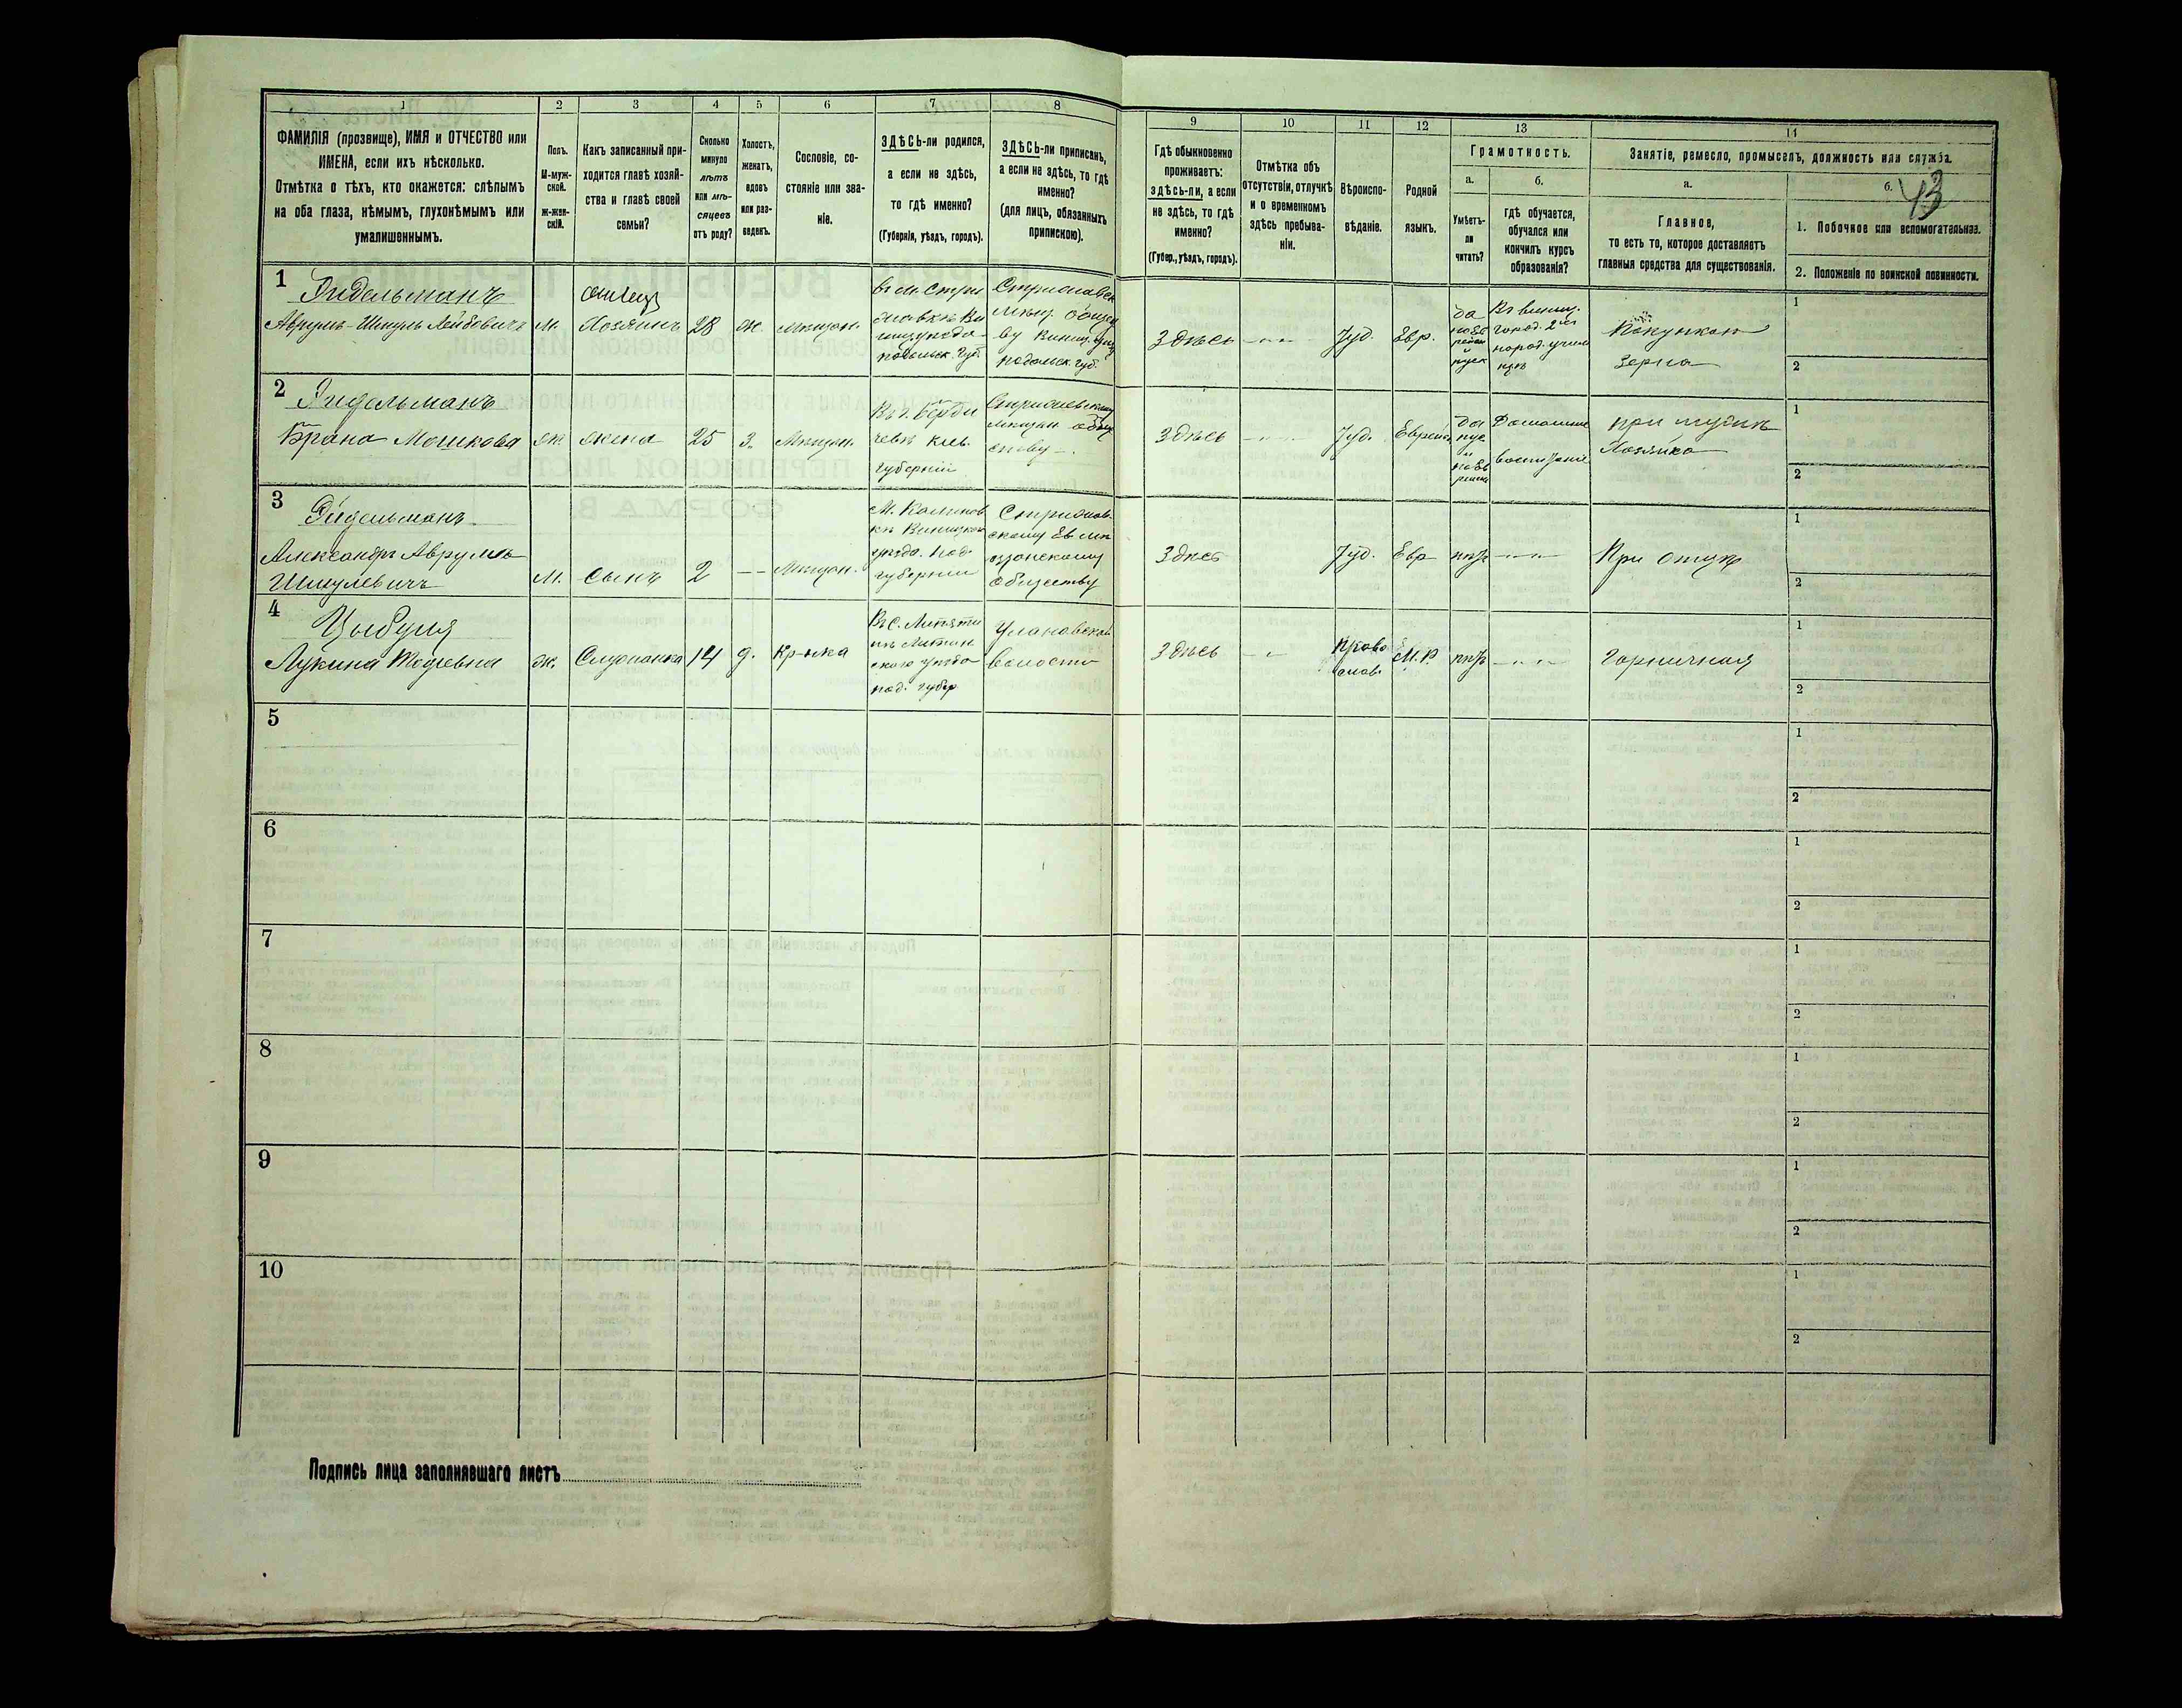 1
2
3
4
5
6
7
8
ФАМИЛІЯ (прозвище), ИМЯ и ОТЧЕСТВО или
ИМЕНА, если ихъ нѣсколько.
Отмѣтка о тѣхъ, кто окажется: слѣпымъ
на оба глаза, нѣмымъ, глухонѣмымъ или
умалишеннымъ.
Полъ.
М-муж-
ской.
Ж-жен-
скій.
Какъ записанный при-
ходится главѣ хозяй-
ства и главѣ своей
семьи?
Сколько
минуло
лѣтъ
или мѣ-
сяцевъ
отъ роду?
Холостъ,
женатъ,
вдовъ
или раз-
веденъ.
Сословіе, со-
стояніе или зва-
ніе.
ЗДѢСЬ-ли родился,
а если не здѣсь,
то гдѣ именно?
(Губернія, уѣздъ, городъ).
ЗДѢСЬ-ли приписанъ,
а если не здѣсь, то гдѣ
именно?
(для лицъ, обязанныхъ
припискою).
9
10
11
12
13
14
Гдѣ обыкновенно
проживаетъ:
здѣсь-ли, а если
не здѣсь, то гдѣ
именно?
(Губер., уѣздъ, городъ).
Отмѣтка объ
отсутствіи, отлучкѣ
и о временномъ
здѣсь пребыва-
ніи.
Вѣроиспо-
вѣданіе.
Родной
языкъ.
Грамотность.
а.
Умѣетъ-
ли
читать?
б.
Гдѣ обучается,
обучался или
кончилъ курсъ
образованія?
Занятіе, ремесло, промыселъ, должность или служба.
а.
Главное,
то есть то, которое доставляетъ
главныя средства для существованія.
б.
43
1. Побочное или вспомогательное.
2. Положеніе по воинской повинности.
1
Эйдельманъ
Аврумъ-Шмуль Лейбовичъ
м.
Хозяинъ
28
ж.
Мѣщан.
подольск. губ.
подольск. губ.
Здѣсь
Іуд.
Евр.
да
зерна
1
2
2
Эйдельманъ
Брана Мошкова
ж
жена
25
з.
Мѣщан.
Въ г. Берди
чевѣ кіев.
губерніи
Здѣсь
Іуд.
да
Домашнее
воспитаніе
при мужѣ
Хозяйка
1
2
3
Эйдельманъ
Александръ Аврумъ
Шмулевичъ
м.
сынъ
2
Мѣщан.
М. Калинов
кѣ Винницкаго
уѣзда. Под.
губерніи
обществу
Здѣсь
Іуд.
Евр
нѣтъ
При отцѣ
1
2
4
Цыбуля
ж.
Служанка
14
д.
Кр-нка
под. губер
Улановской
волости
Здѣсь
Право
слав.
М.Р.
нѣтъ
Горничная
1
2
5
1
2
6
1
2
7
1
2
8
1
2
9
1
2
10
1
2
Подпись лица заполнявшаго листъ